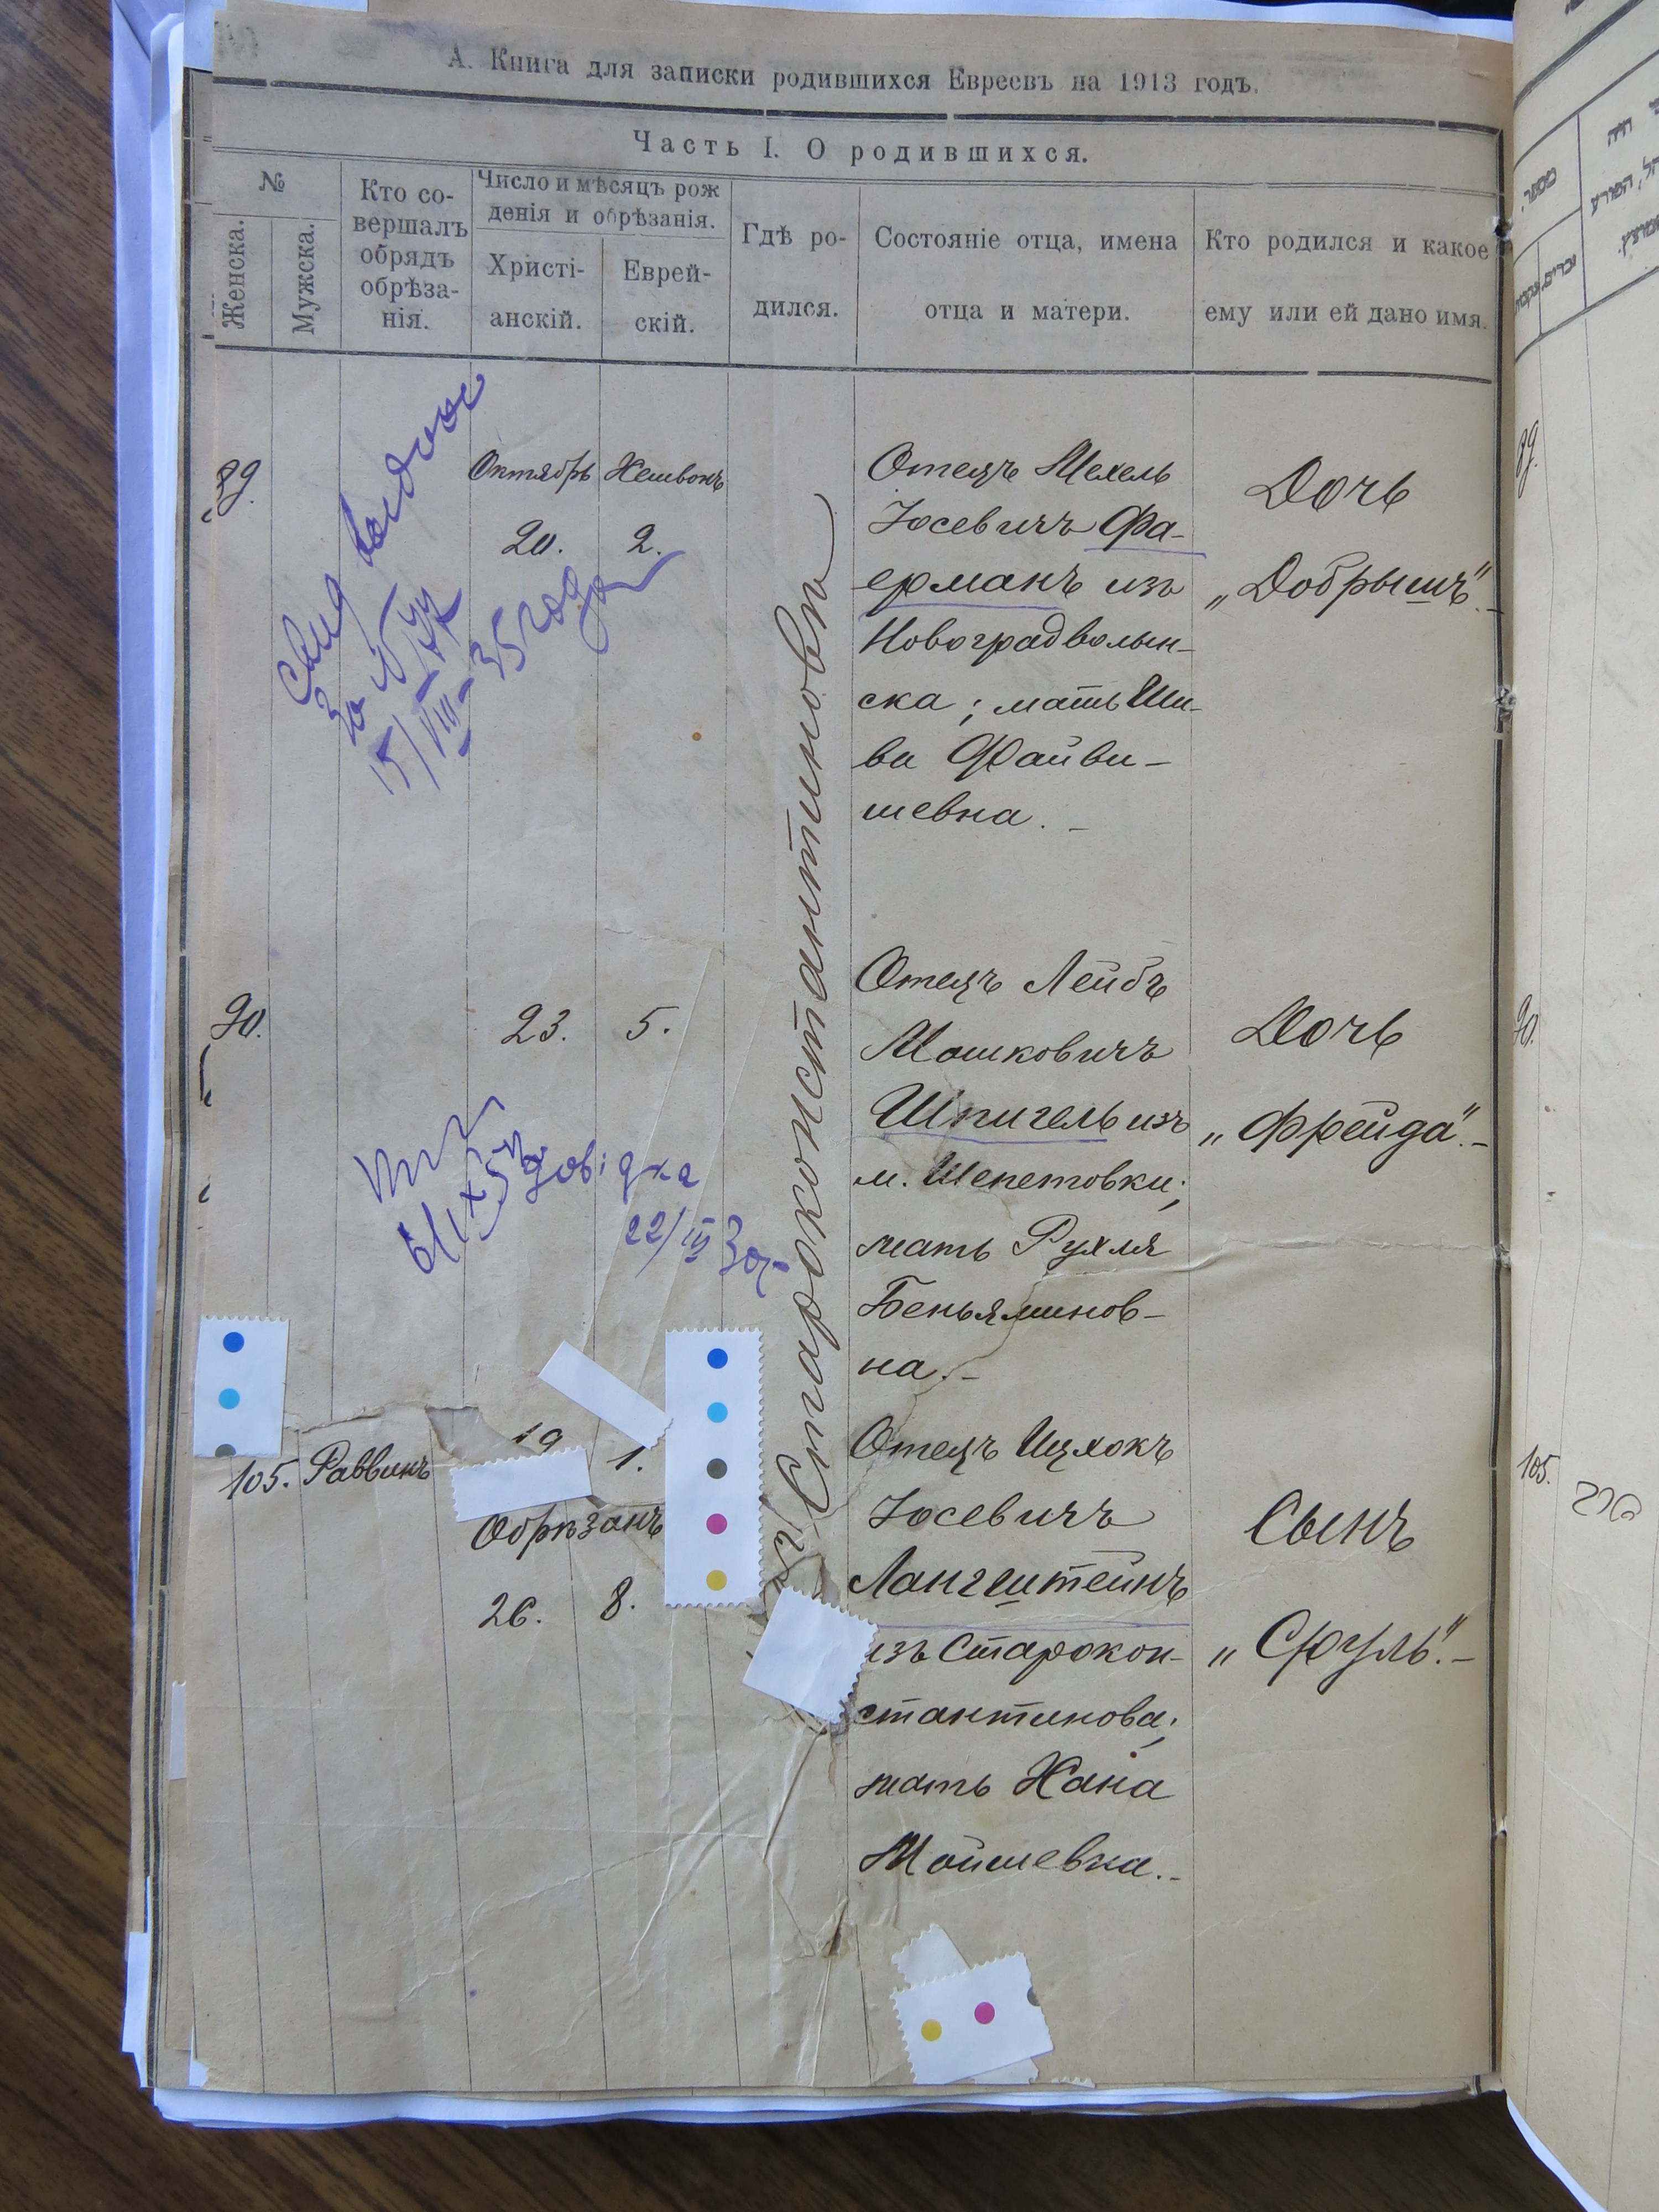 А. Книга для записки родившихся Евреевъ на 1913 годъ.
Часть I. О родившихся.
№
Женска.
Мужска.
Кто со-
вершалъ
обрядъ
обрѣза-
нія.
Число и мѣсяцъ рож
денія и обрѣзанія.
Христі-
анскій.
Еврей-
скій.
Гдѣ ро-
дился.
Состояніе отца, имена
отца и матери.
Кто родился и какое
ему или ей дано имя.
89.
Октябрь
20.
Хешвонъ
2.
Отецъ Мехель
Юсевичъ Фа-
ерманъ изъ
Новоградволын-
ска; мать Ши-
ва Файви-
шевна.-
Дочь
„Добрышъ".-
15/VIII-35 года
Старокон­стантиновъ
90.
23.
5.
Отецъ Лейбъ
Мошковичъ
Шпигель изъ
м. Шепетовки;
мать Рухля
Беньяминов-
на.-
Дочь
„Фрейда".-
довідка
22/III
105.
Раввинъ
19
1.
Обрѣзанъ
26.
8.
Отецъ Ицхокъ
Юсевичъ
Лангштейнъ
изъ Старокон-
стантинова;
мать Хана
Мойшевна.-
Сынъ
„Сруль".-
89.
90.
105.